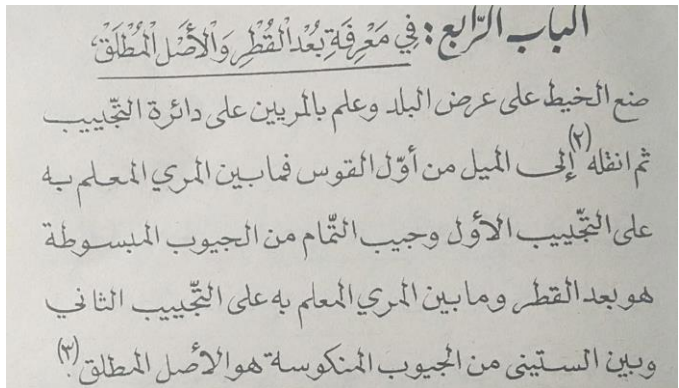 الباب الرّابع: في مَعْرِفَةِ بُعْدِ الْقُطْرِ وَالْأَصْلِ الْمُطْلَقِ،
ضع الخيط على عرض البلد وعلم بالمريين على دائرة التّجييب
ثم انقله (٢) إلى الميل من أوّل القوس فما بين المري المعلم به
على التجّييب الأول وجيب التّمام من الجيوب المبسوطة
هو بعد القطر وما بين المري المعلم به على التجّييب الثاني
وبين الستيني من الجيوب المنكوسة هو الأصل المطلق (٣).